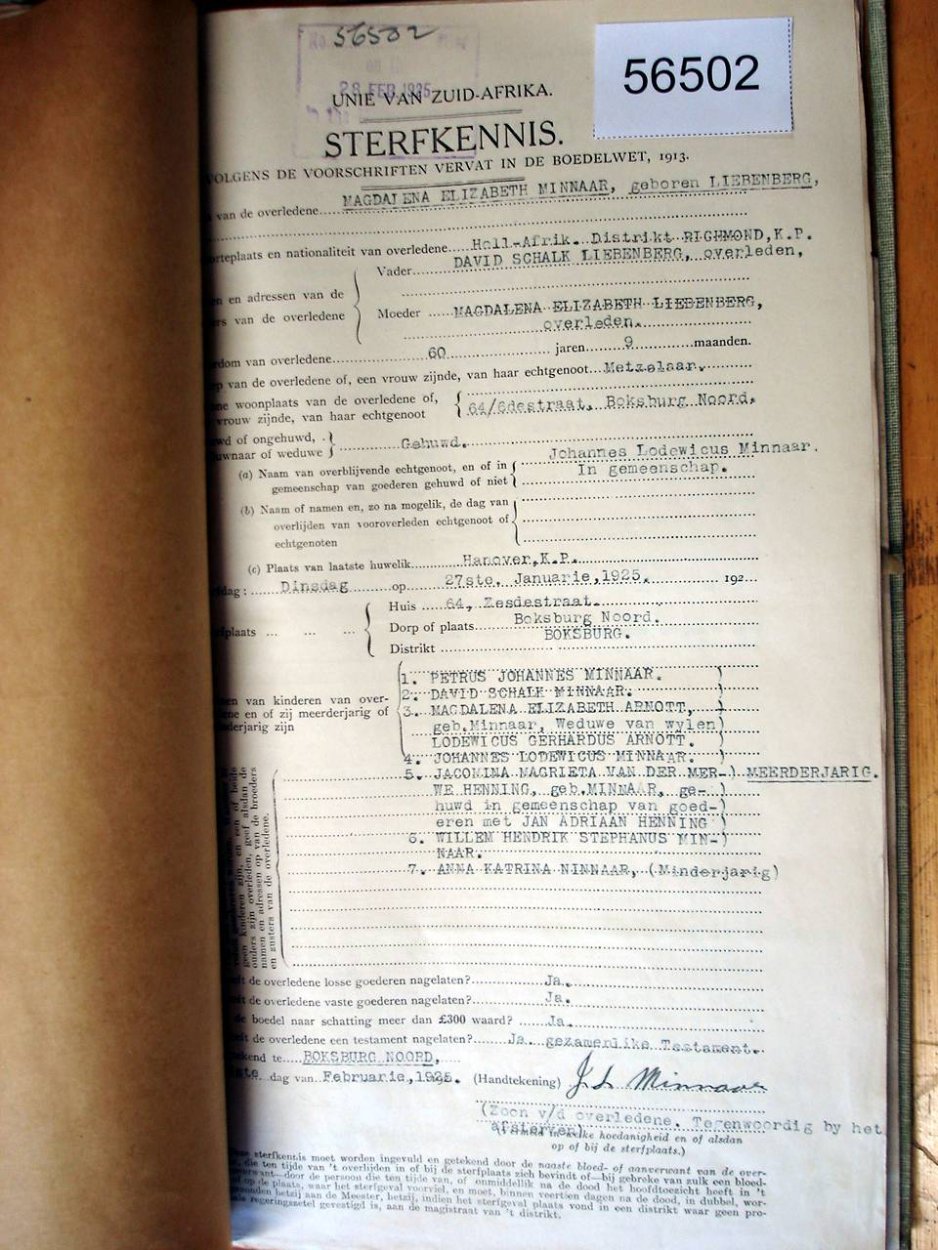 56502
56502
28 FEB 1925
UNIE VAN ZUID-AFRIKA.
STERFKENNIS.
VOLGENS DE VOORSCHRIFTEN VERVAT IN DE BOEDELWET, 1913.
van de overledene MAGDALENA ELIZABETH MINNAAR, geboren LIEBENBERG,
orteplaats en nationaliteit van overledene Holl-Afrik. Distrikt RICHMOND, K.P.
Vader DAVID SCHALK LIEBENBERG, overleden,
en en adressen van de
rs van de overledene
Moeder MAGDALENA ELIZABETH LIEBENBERG,
overleden.
dom van overledene 60 jaren 9 maanden.
ep van de overledene of, een vrouw zijnde, van haar echtgenoot Metzelaar.
ne woonplaats van de overledene of,
vrouw zijnde, van haar echtgenoot 64/6destraat, Boksburg Noord.
wd of ongehuwd,
uwnaar of weduwe Gehuwd.
Johannes Lodewicus Minnaar.
(a) Naam van overblijvende echtgenoot, en of in In gemeenschap.
gemeenschap van goederen gehuwd of niet
(b) Naam of namen en, zo na mogelik, de dag van
overlijden van vooroverleden echtgenoot of
echtgenoten
(c) Plaats van laatste huwelik Hanover, K.P.
fdag: Dinsdag op 27ste. Januarie, 1925. 192
Huis 64, Zesdestraat.
fplaats ... ... ... Dorp of plaats Boksburg Noord.
Distrikt BOKSBURG.
1. PETRUS JOHANNES MINNAAR. )
2. DAVID SCHALK MINNAAR. )
en van kinderen van over- 3. MAGDALENA ELIZABETH ARNOTT, )
ne en of zij meerderjarig of geb. Minnaar, Weduwe van wylen)
nderjarig zijn LODEWICUS GERHARDUS ARNOTT. )
4. JOHANNES LODEWICUS MINNAAR. )
5. JACOMINA MAGRIETA VAN DER MER-) MEERDERJARIG.
WE HENNING, geb. MINNAAR, ge- )
huwd in gemeenschap van goed-)
eren met JAN ADRIAAN HENNING )
6. WILLEM HENDRIK STEPHANUS MIN-)
NAAR.
7. ANNA KATRINA NINNAAR, (Minderjarig)
geen kinderen zijn, en een of beide
ouders zijn overleden, geef alsdan de
namen en adressen op van de broeders
en zusters van de overledene.
de overledene losse goederen nagelaten? Ja.
de overledene vaste goederen nagelaten? Ja.
de boedel naar schatting meer dan £300 waard? Ja.
de overledene een testament nagelaten? Ja gezamenlike Testament.
kend te BOKSBURG NOORD,
dag van Februarie, 1925. (Handtekening) J. L. Minnaar
(Zoon v/d overledene. Tegenwoordig by het
afsterven)
in welke hoedanigheid en of alsdan
op of bij de sterfplaats.)
sterfkennis moet worden ingevuld en getekend door de naaste bloed- of aanverwant van de over-
die ten tijde van 't overlijden in of bij de sterfplaats zich bevindt of—bij gebreke van zulk een bloed-
door de persoon die ten tijde van, of onmiddellik na de dood het hoofdtoezicht heeft in 't
of op de plaats, waar het sterfgeval voorviel, en moet, binnen veertien dagen na de dood, in dubbel, wor-
gezonden hetzij aan de Meester, hetzij, indien het sterfgeval plaats vond in een distrikt waar geen pro-
regeringszetel gevestigd is, aan de magistraat van 't distrikt.